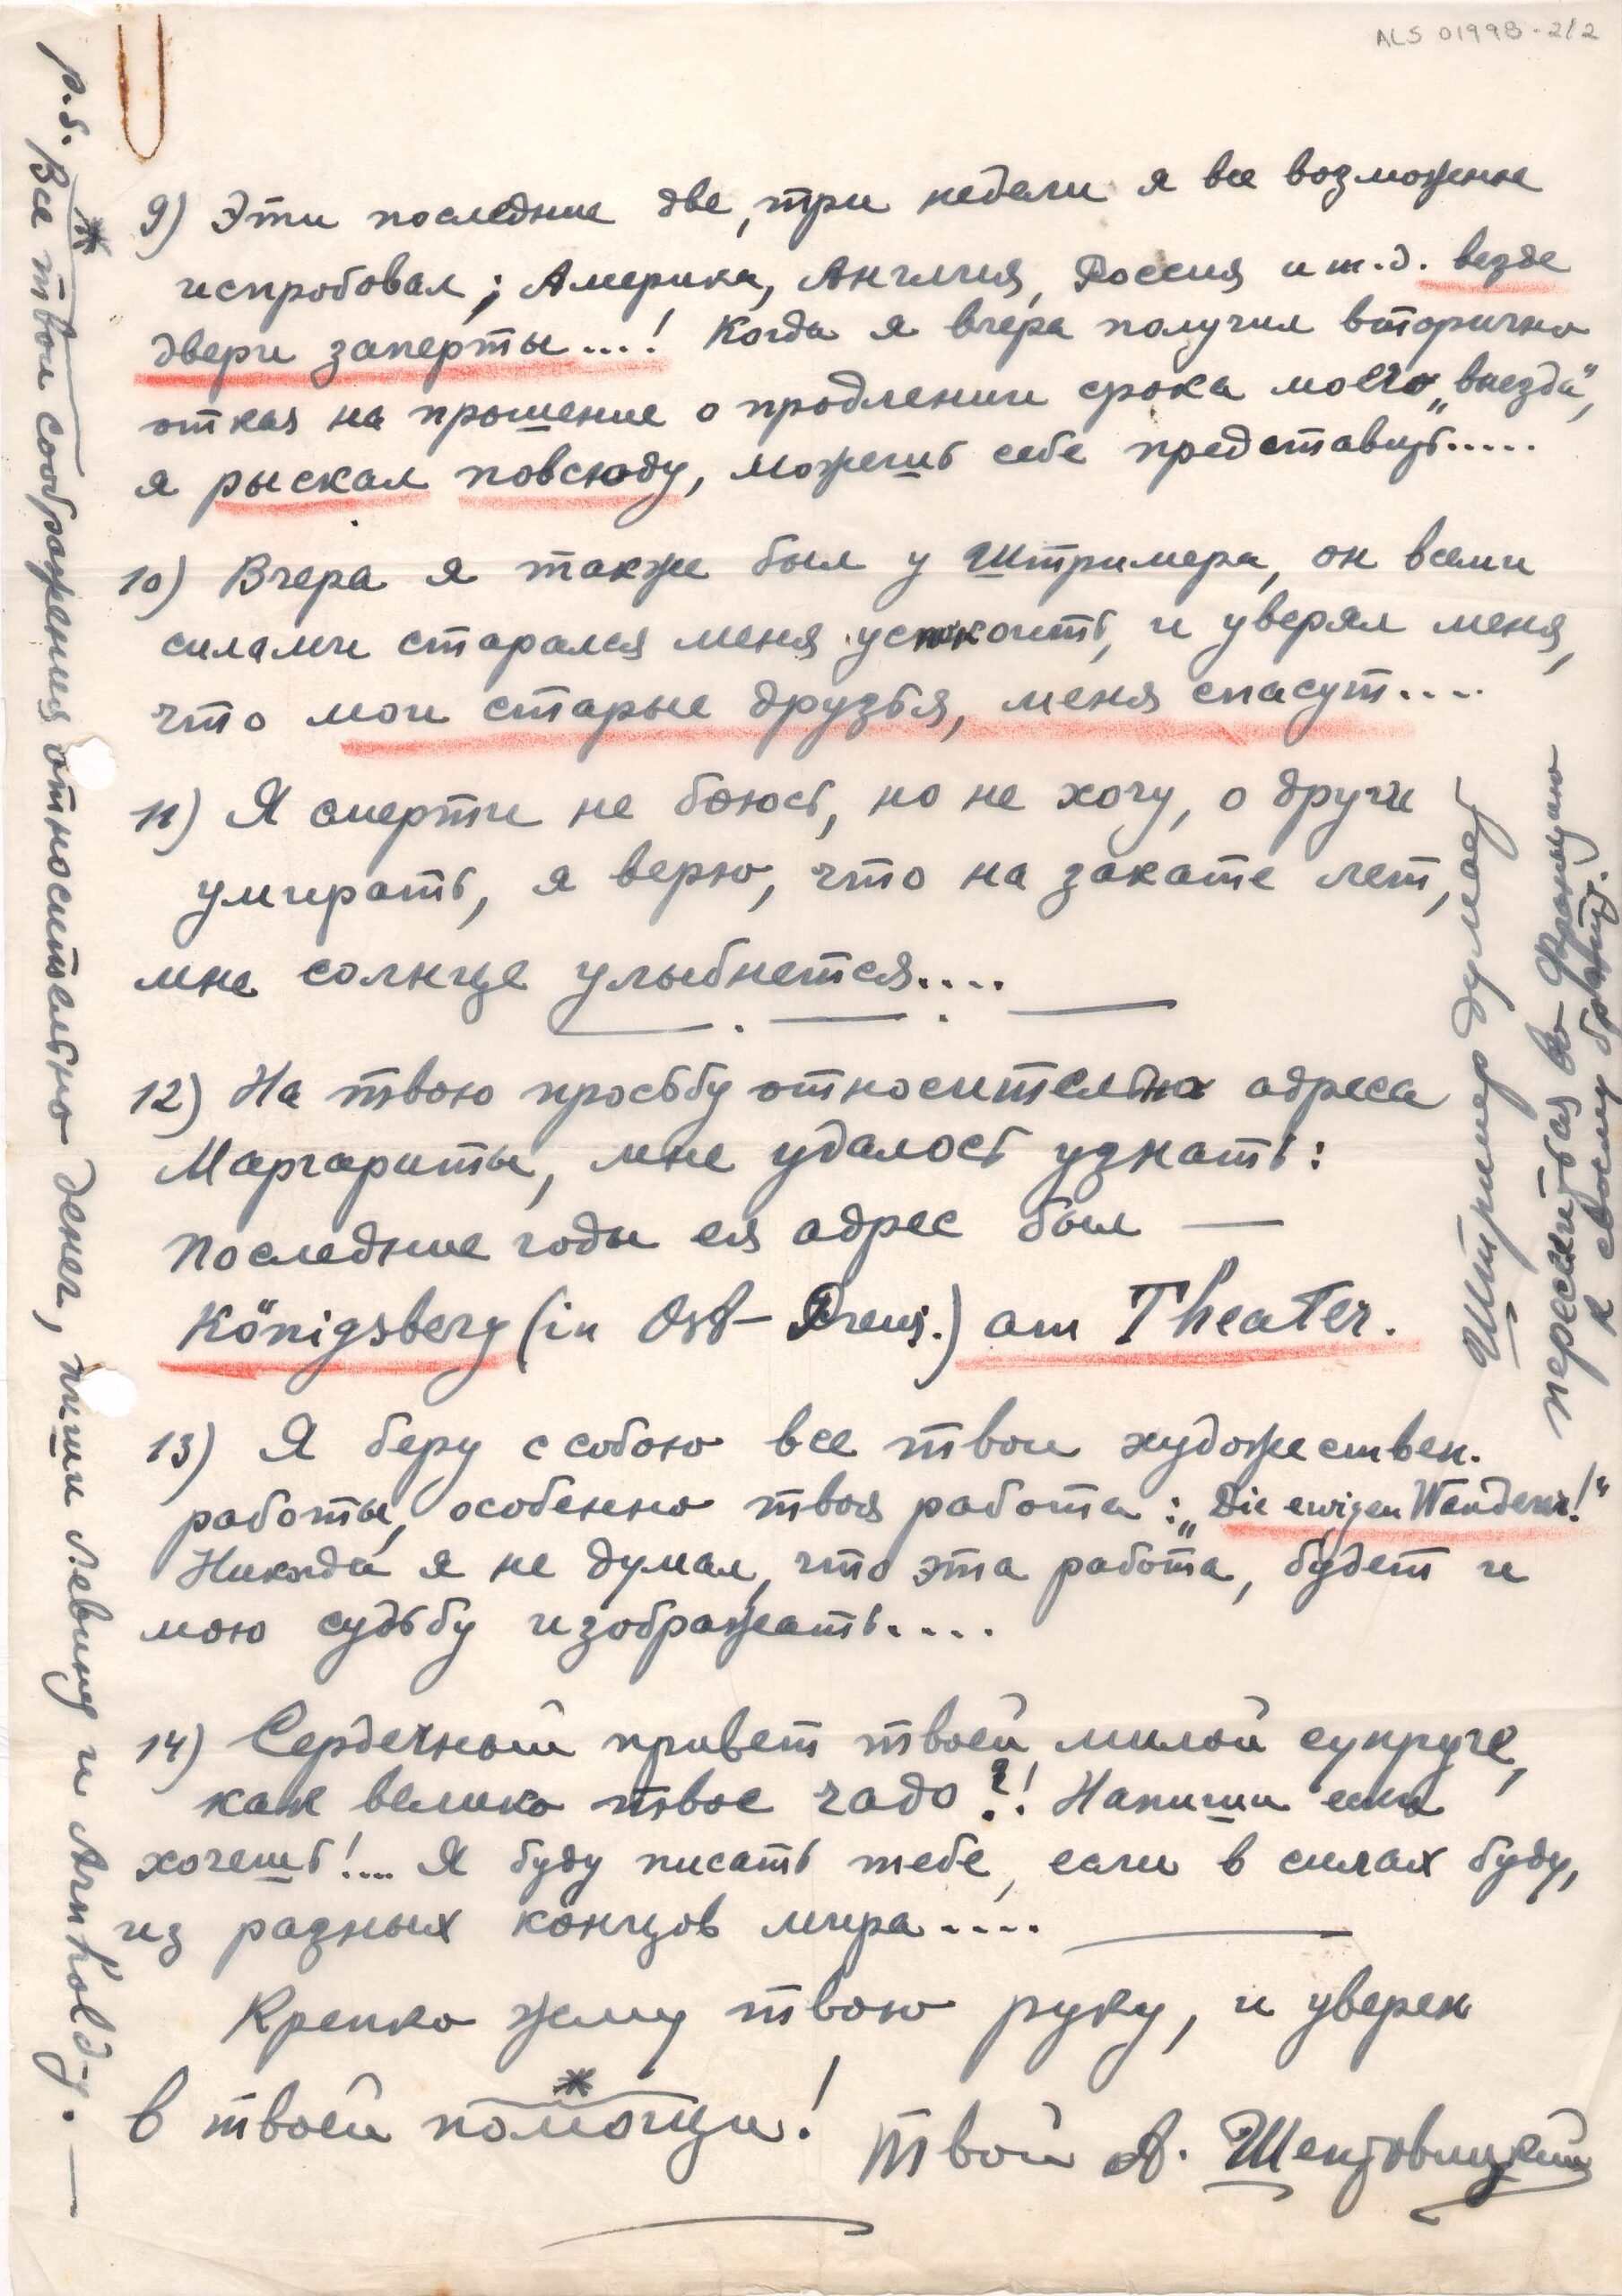 ALS 01998-2/2
9) Эти последние две, три недели я все возможное
испробовал; Америка, Англия, Россия и т.д. везде
двери заперты...! Когда я вчера получил вторично
отказ на прошение о продлении срока моего „выезда“,
я рыскал повсюду, можешь себе представить.....
10) Вчера я также был у Штримера, он всеми
силами старался меня успокоить, и уверял меня,
что мои старые друзья, меня спасут....
11) Я смерти не боюсь, но не хочу, о други
умирать, я верю, что на закате лет,
мне солнце улыбнется....
12) На твою просьбу относительно адреса
Маргариты, мне удалось узнать:
Последние годы ея адрес был —
Königsberg (in Ost-Preus.) am Theater.
13) Я беру с собою все твои художествен.
работы, особенно твоя работа: „Die ewigen Wanderer!“
Никогда я не думал, что эта работа, будет и
мою судьбу изображать....
14) Сердечный привет твоей милой супруге,
как велико твое чадо?! Напиши если
хочешь!.... Я буду писать тебе, если в силах буду,
из разных концов мира....
Крепко жму твою руку, и уверен
в твоей помощи! *
Твой А.
Штример думает
переселиться во Францию
к своему брату.
p.s. * Все твои соображения относительно денег, пиши Левину и Arnhold-у. —